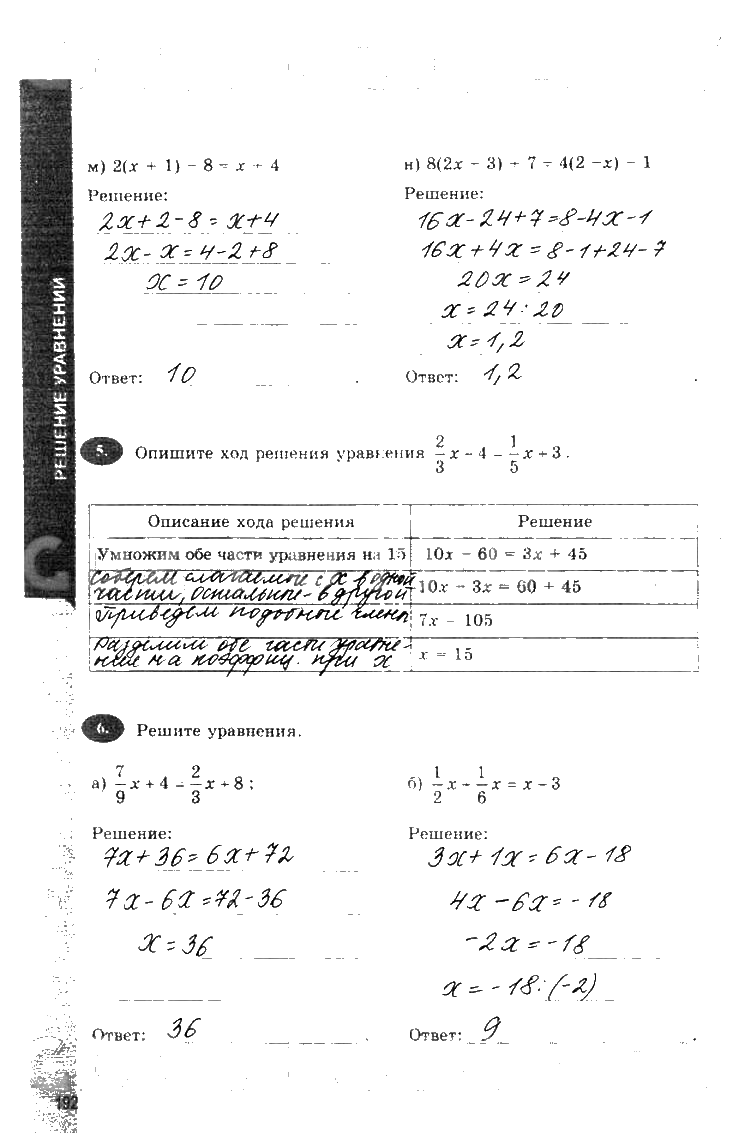 РЕШЕНИЕ УРАВНЕНИЙ
м) 2(x + 1) - 8 = x + 4
Решение:
2x+2-8=x+4
2x-x=4-2+8
x=10
Ответ: 10
н) 8(2x - 3) + 7 = 4(2 -x) - 1
Решение:
16x-24+7=8-4x-1
16x+4x=8-1+24-7
20x=24
x=24:20
x=1,2
Ответ: 1,2
5. Опишите ход решения уравнения 2/3 x - 4 = 1/5 x + 3.
Описание хода решения | Решение
Умножим обе части уравнения на 15 | 10x - 60 = 3x + 45
Соберем слагаемые с x в одной
части, остальные - в другой | 10x - 3x = 60 + 45
Приведем подобные члены | 7x = 105
Разделим обе части уравне-
ние на коэффиц. при x | x = 15
6. Решите уравнения.
а) 7/9 x + 4 = 2/3 x + 8;
Решение:
7x+36=6x+72
7x-6x=72-36
x=36
Ответ: 36
б) 1/2 x + 1/6 x = x - 3
Решение:
3x+1x=6x-18
4x-6x=-18
-2x=-18
x=-18:(-2)
Ответ: 9
192